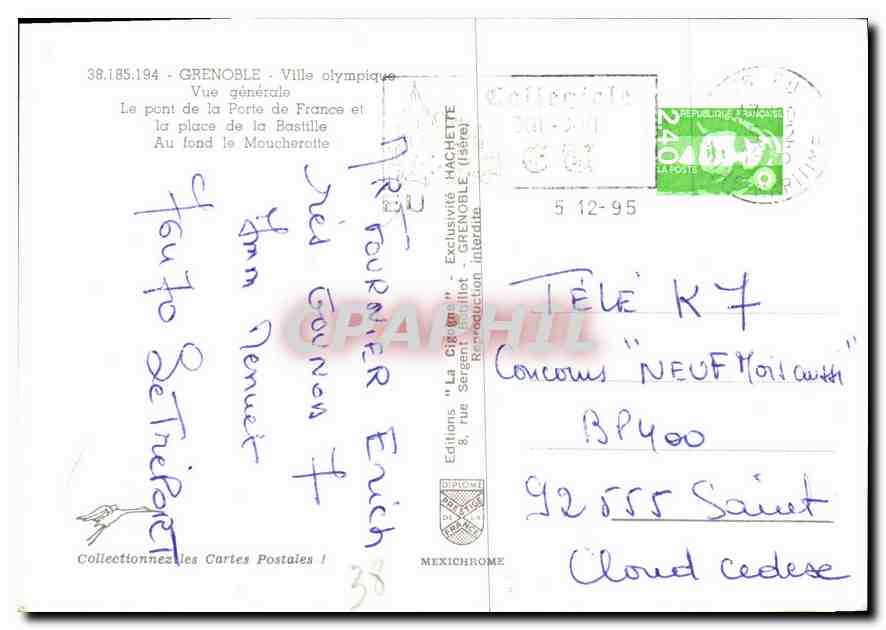 38.185.194 - GRENOBLE - Ville olympique
Vue générale
Le pont de la Porte de France et
la place de la Bastille
Au fond le Moucherotte
MR FOURNIER Erich
rés GOUNOD
Imm Menuet
76470 Le TRÉPORT
Collectionnez les Cartes Postales !
38
Editions "La Cigogne" - Exclusivité HACHETTE
8, rue Sergent Bobillot - GRENOBLE (Isère)
Reproduction interdite
DIPLOME
PRESTIGE
DE LA
FRANCE
MEXICHROME
EU
5 12-95
2,40
REPUBLIQUE FRANÇAISE
LA POSTE
TÉLÉ K7
Concours "NEUF Mois aussi"
BP400
92555 Saint
Cloud cedex
CPAPHIL